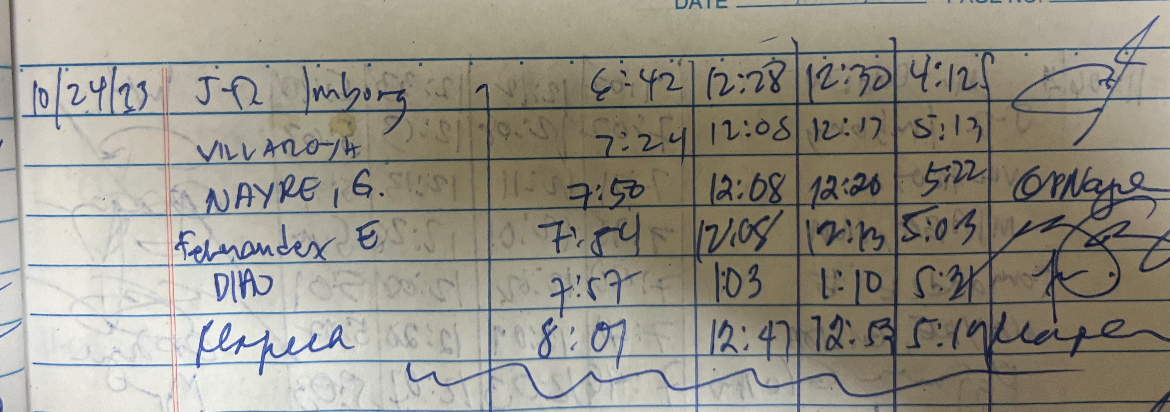 DATE PAGE NO.
10/24/23 J-R Imborg 6:42 12:28 12:30 4:12
VILLAROTA 7:24 12:08 12:17 5:13
NAYRE, G. 7:50 12:08 12:20 5:22
Fernandez E 7:54 12:08 12:13 5:03
DIAO 7:57 1:03 1:10 5:21
8:01 12:47 12:53 5:19